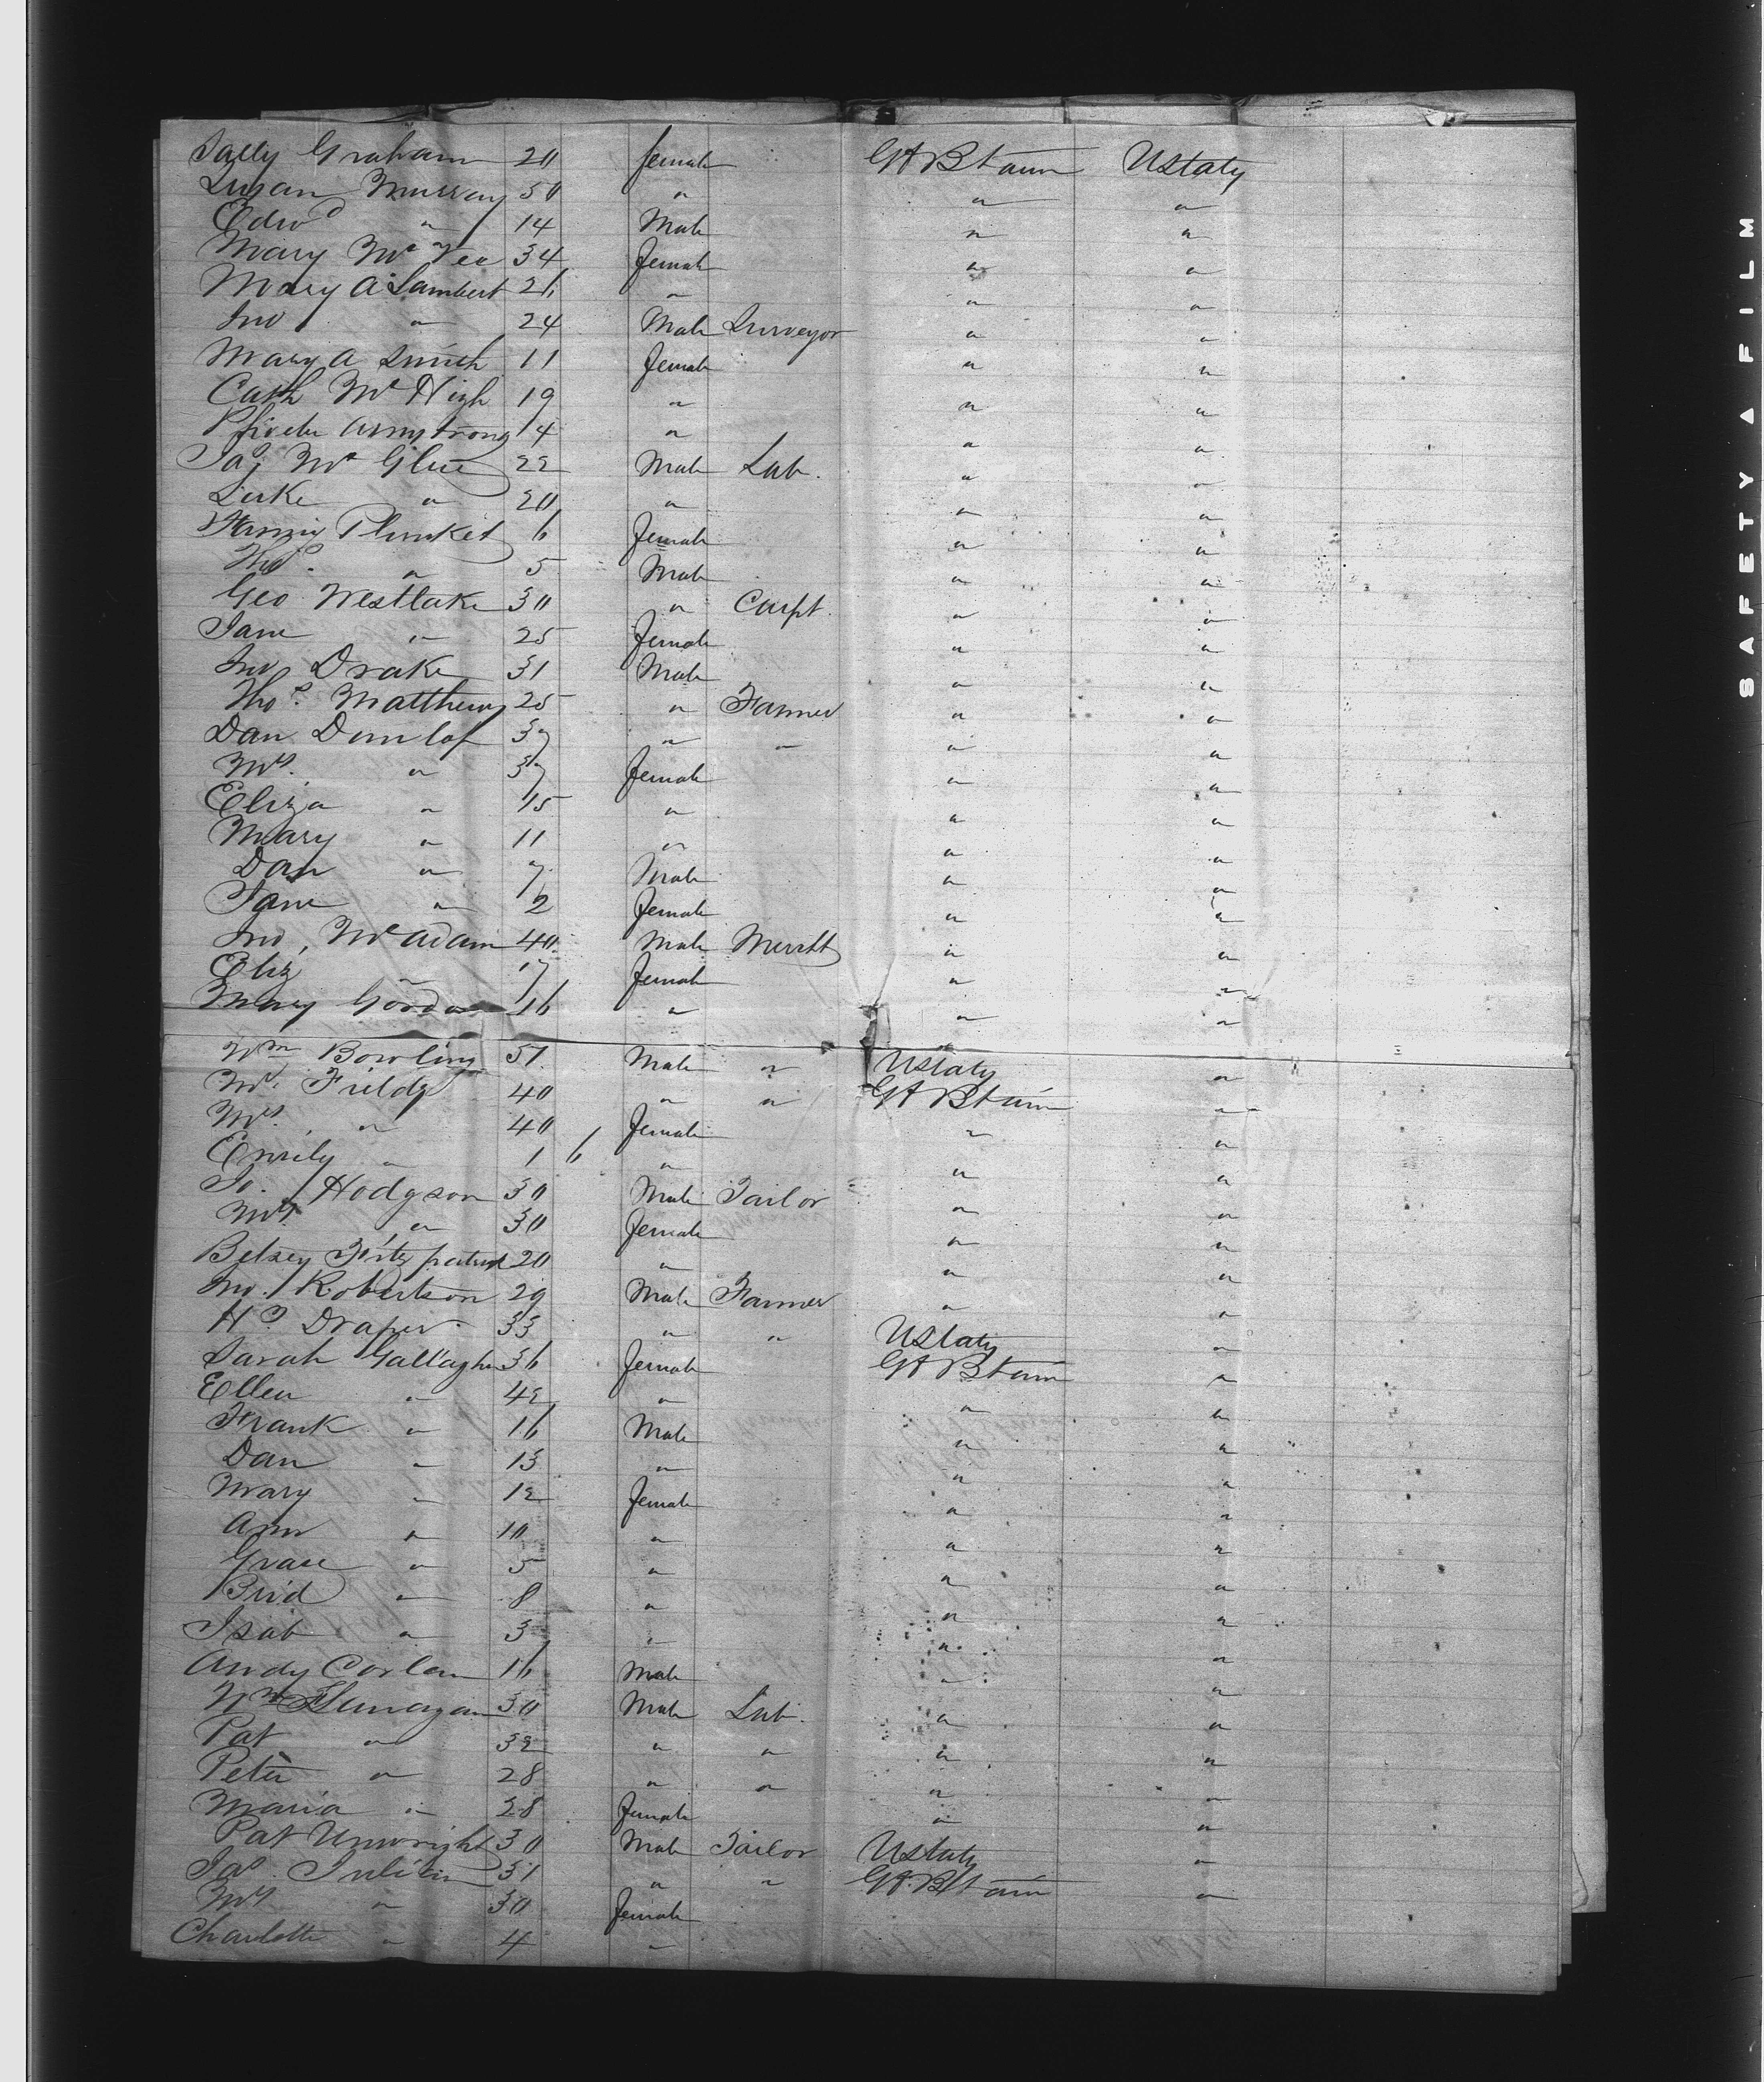 Sally Graham 20 female Gt Btain Ustats
Susan Murray 50 " " "
Edwd " 14 Male " "
Mary Mc Vea 34 female " "
Mary A Lambert 26 " " "
Jno " 24 Male Surveyor " "
Mary A Smith 11 female " "
Cath Mc High 19 " " "
Phoebe Armstrong 14 " " "
Jas Mc Glue 22 Male Lab. " "
Luke " 20 " " "
Plunket 6 female " "
Thos. " 5 Male " "
Geo Westlake 30 " Carpt. " "
Jane " 25 female " "
Jno Drake 31 Male " "
Thos. Matthews 25 " Farmer " "
Dan Dunlop 37 " " " "
Mrs. " 37 female " "
Eliza " 15 " " "
Mary " 11 " " "
Dan " 7 Male " "
Jane " 2 female " "
Jno, McAdam 40 Male Mercht " "
Eliz " 17 female " "
Mary Gordon 16 " " "
Wm Bowling 51 Male " Ustats "
Mr. Fields 40 " " Gt Btain "
Mrs. " 40 female " "
Emily " 1 6 " " "
Jo. Hodgson 30 Male Tailor " "
Mrs " 30 female " "
Betsey Fitzpatrick 20 " " "
Jno. Robertson 29 Male Farmer " "
Hy Draper 33 " " Ustats "
Sarah Gallagher 36 female Gt Btain "
Ellen " 42 " " "
Frank " 16 Male " "
Dan " 13 " " "
Mary " 12 female " "
Ann " 10 " " "
Grace " 5 " " "
Brid " 8 " " "
Isab " 3 " " "
Andy Corlan 16 Male " "
Wm Flanagan 30 Male Lab. " "
Pat " 32 " " " "
Peter " 28 " " " "
Maria " 28 female " "
Pat Unwright 30 Male Tailor Ustats "
Jas. Julian 31 " " Gt. Btain "
Mrs " 30 female
Charlotte " 4 "
SAFETY A FILM